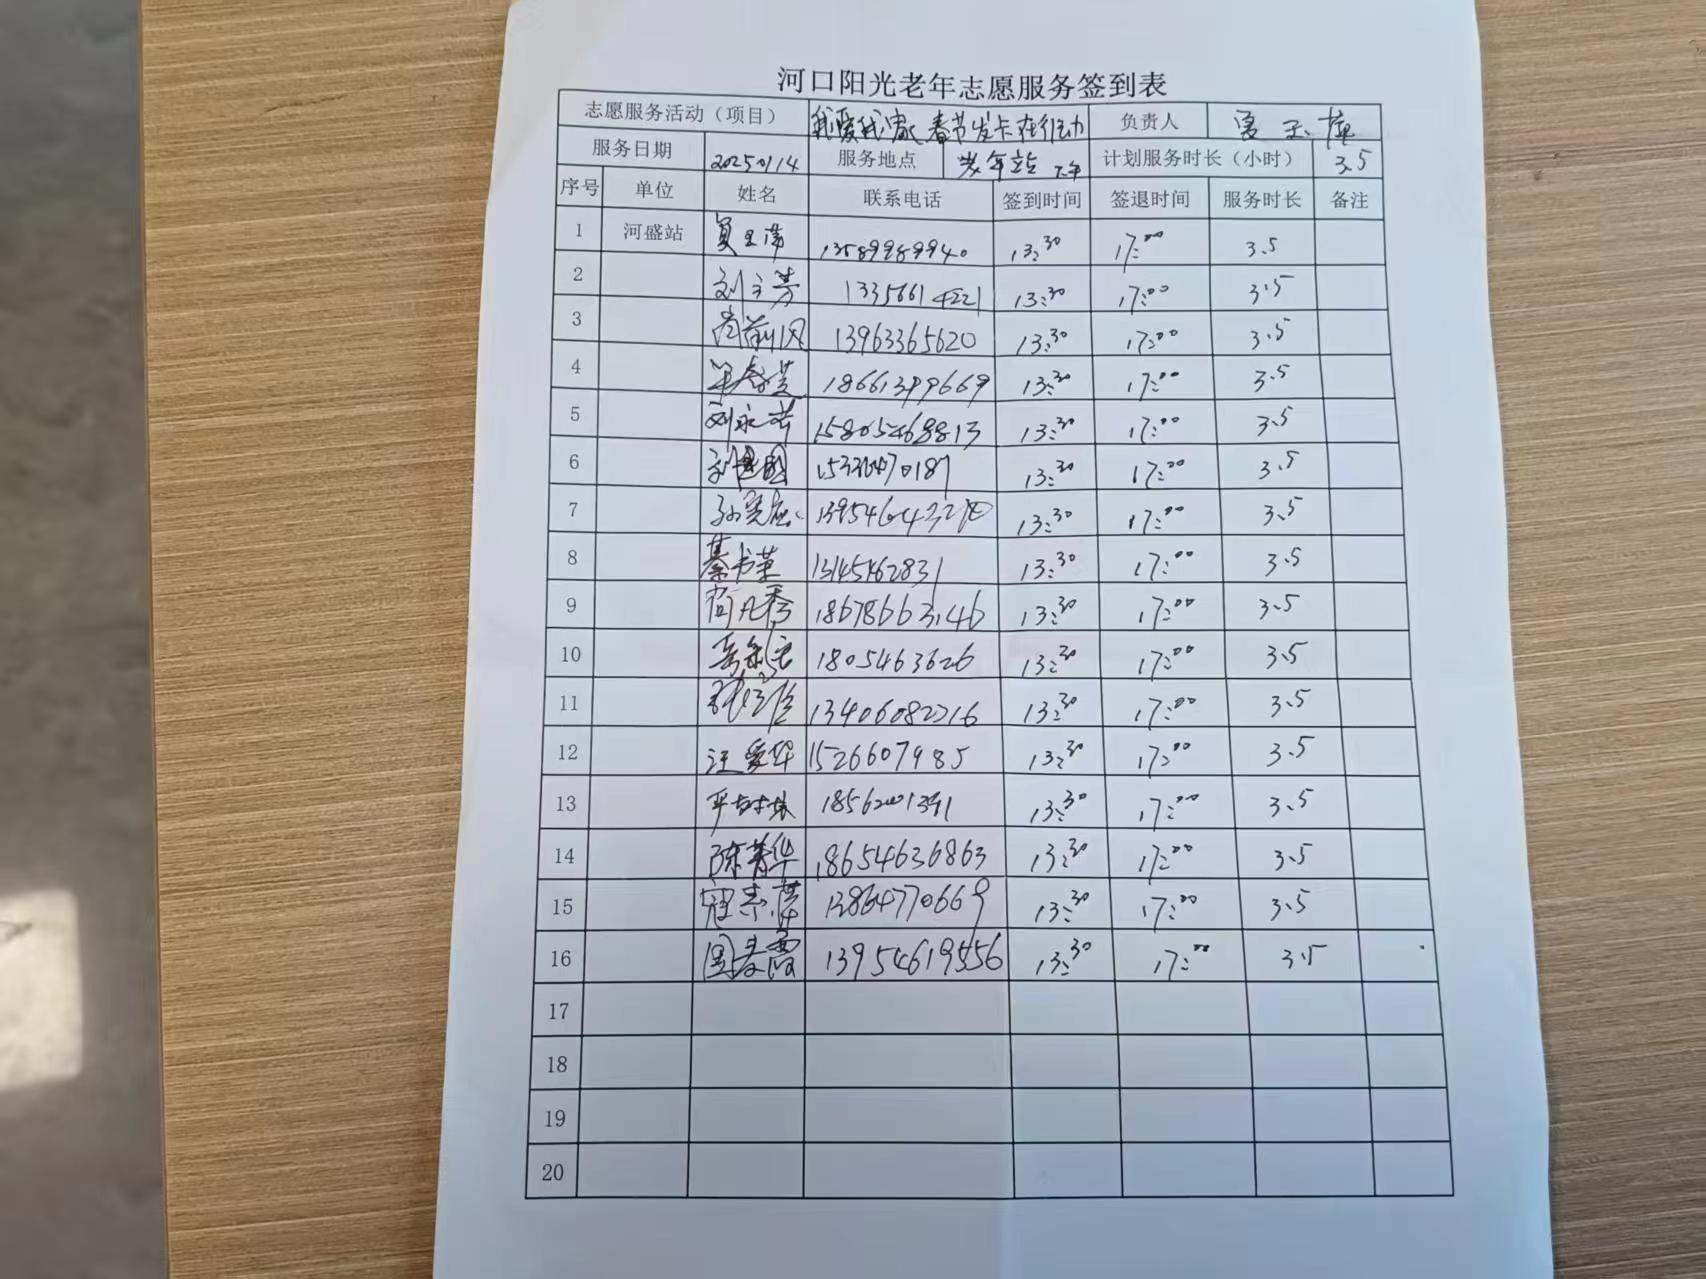 河口阳光老年志愿服务签到表
志愿服务活动（项目） 我爱我家 春节发卡在行动 负责人
服务日期 20250114 服务地点 老年站 计划服务时长（小时） 3.5
序号 单位 姓名 联系电话 签到时间 签退时间 服务时长 备注
1 河盛站 13589989940 13:30 17:00 3.5
2 刘立芳 13356614221 13:30 17:00 3.5
3 13963365620 13:30 17:00 3.5
4 18661399669 13:30 17:00 3.5
5 刘永芳 15805468813 13:30 17:00 3.5
6 刘建国 13:30 17:00 3.5
7 13:30 17:00 3.5
8 綦书革 13145462831 13:30 17:00 3.5
9 尚凡秀 18678663146 13:30 17:00 3.5
10 1805463626 13:30 17:00 3.5
11 13406082216 13:30 17:00 3.5
12 汪爱华 1526607985 13:30 17:00 3.5
13 13:30 17:00 3.5
14 陈菁华 18654636863 13:30 17:00 3.5
15 寇素萍 13864770669 13:30 17:00 3.5
16 周春霞 13954619556 13:30 17:00 3.5
17
18
19
20